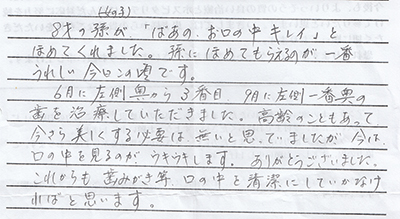 (その3)
8才の孫が、「ばあの、お口の中キレイ」と
ほめてくれました。孫にほめてもらえるのが一番
うれしい今日この頃です。
6月に左側奥から3番目 9月に左側一番奥の
歯を治療していただきました。高齢のこともあって
今さら美しくする必要は無いと思っていましたが今は、
口の中を見るのがウキウキします。ありがとうございました。
これからも歯みがき等、口の中を清潔にしていかなけ
ればと思います。